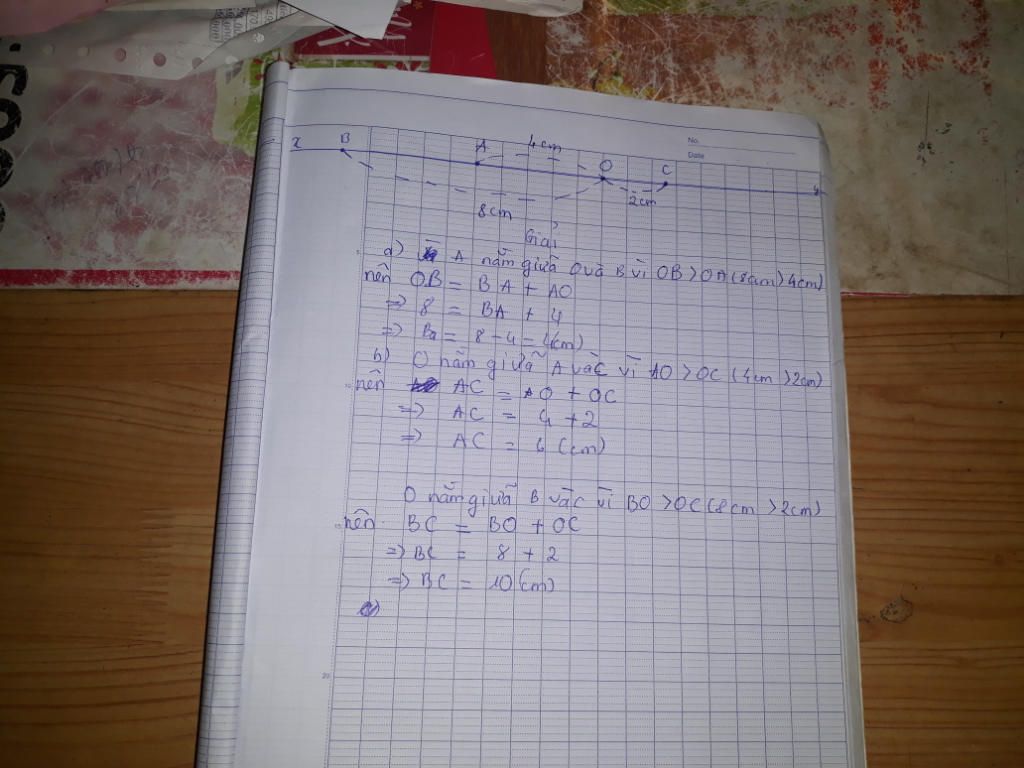 No.
Date
x B A 4cm O C y
8cm 2cm
Giải
a) A nằm giữa O và B vì OB > OA (8cm > 4cm)
nên OB = BA + AO
=> 8 = BA + 4
=> Ba = 8 - 4 = 4(cm)
b) O nằm giữa A và C vì AO > OC (4cm > 2cm)
nên AC = AO + OC
=> AC = 4 + 2
=> AC = 6 (cm)
O nằm giữa B và C vì BO > OC (8cm > 2cm)
nên BC = BO + OC
=> BC = 8 + 2
=> BC = 10 (cm)
20